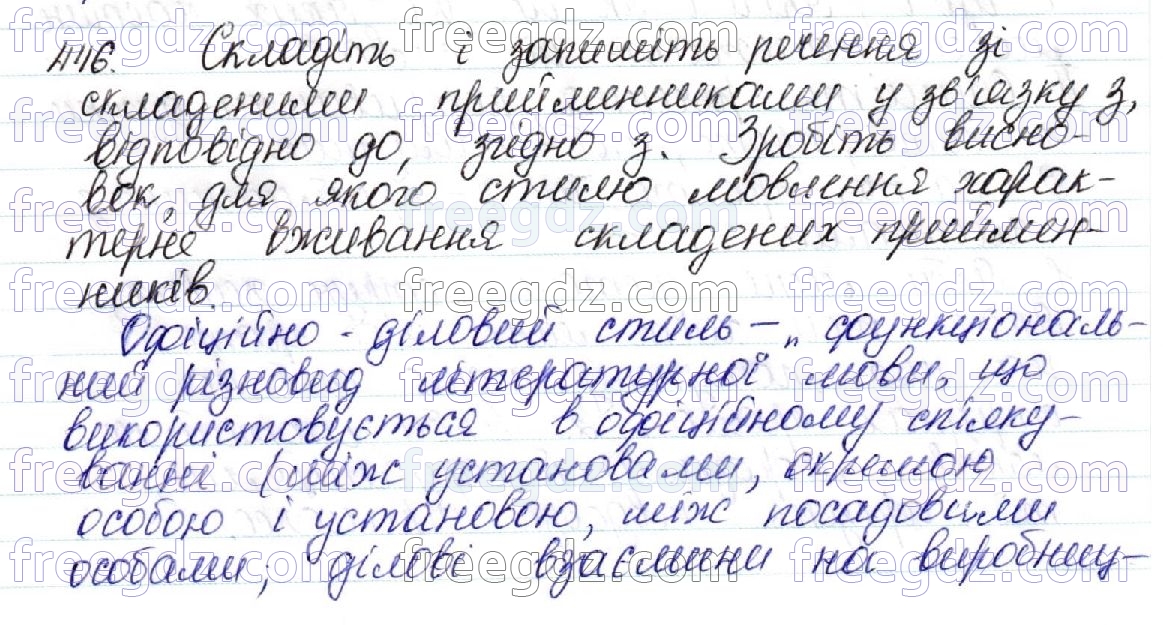 446. Складіть і запишіть речення зі
складеними прийменниками у зв'язку з,
відповідно до, згідно з. Зробіть висно-
вок, для якого стилю мовлення харак-
терне вживання складених приймен-
ників.
Офіційно-діловий стиль – функціональ-
ний різновид літературної мови, що
використовується в офіційному спілку-
ванні (між установами, окремою
особою і установою, між посадовими
особами; ділові взаємини на виробниц-
freegdz.com freegdz.com freegdz.com